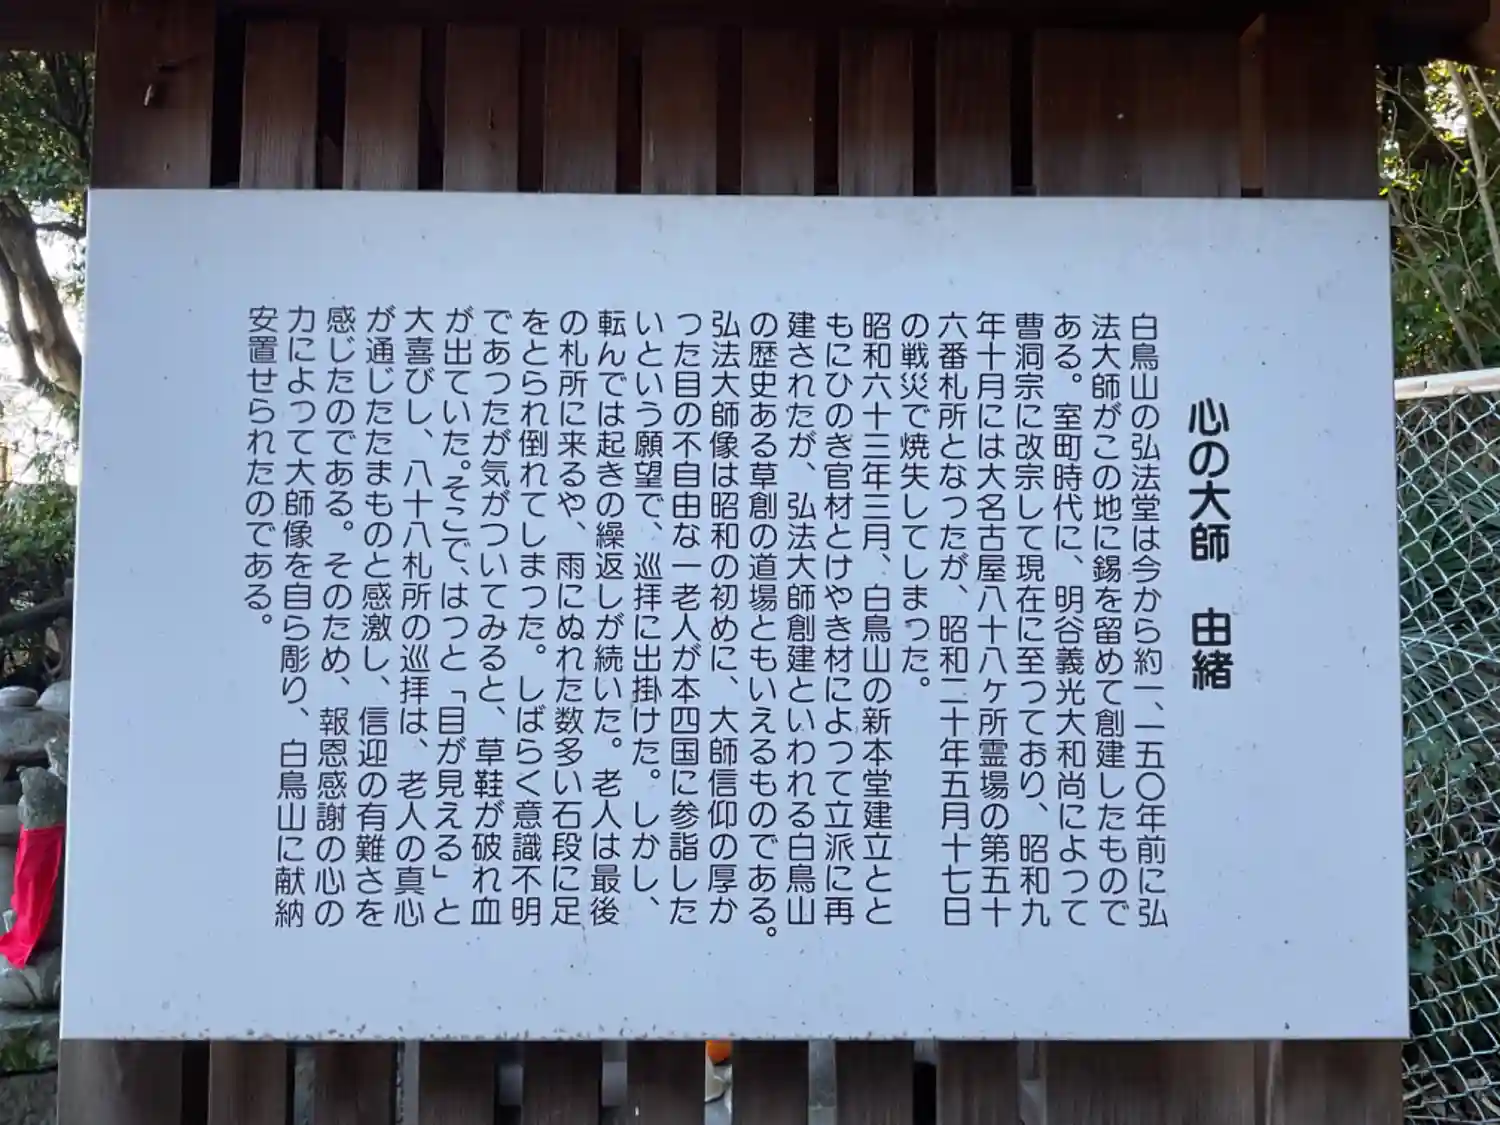 心の大師　由緒
白鳥山の弘法堂は今から約一、一五〇年前に弘
法大師がこの地に錫を留めて創建したもので
ある。室町時代に、明谷義光大和尚によつて
曹洞宗に改宗して現在に至つており、昭和九
年十月には大名古屋八十八ヶ所霊場の第五十
六番札所となつたが、昭和二十年五月十七日
の戦災で焼失してしまつた。
昭和六十三年三月、白鳥山の新本堂建立とと
もにひのき官材とけやき材によつて立派に再
建されたが、弘法大師創建といわれる白鳥山
の歴史ある草創の道場ともいえるものである。
弘法大師像は昭和の初めに、大師信仰の厚か
つた目の不自由な一老人が本四国に参詣した
いという願望で、巡拝に出掛けた。しかし、
転んでは起きの繰返しが続いた。老人は最後
の札所に来るや、雨にぬれた数多い石段に足
をとられ倒れてしまつた。しばらく意識不明
であつたが気がついてみると、草鞋が破れ血
が出ていた。そこで、はつと「目が見える」と
大喜びし、八十八札所の巡拝は、老人の真心
が通じたたまものと感激し、信迎の有難さを
感じたのである。そのため、報恩感謝の心の
力によつて大師像を自ら彫り、白鳥山に献納
安置せられたのである。